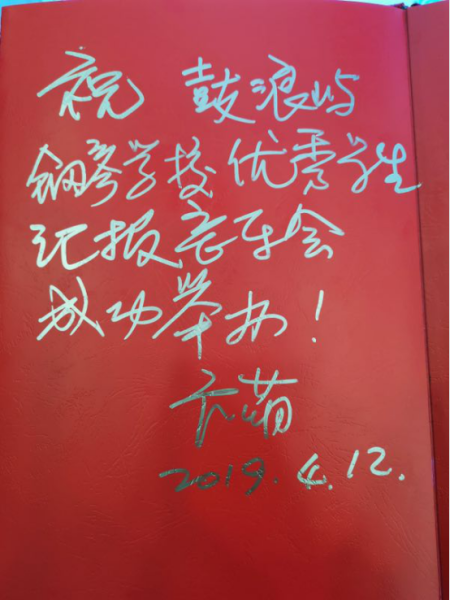 祝 鼓浪屿
钢琴学校优秀学生
汇报音乐会
成功举办!
2019.4.12.